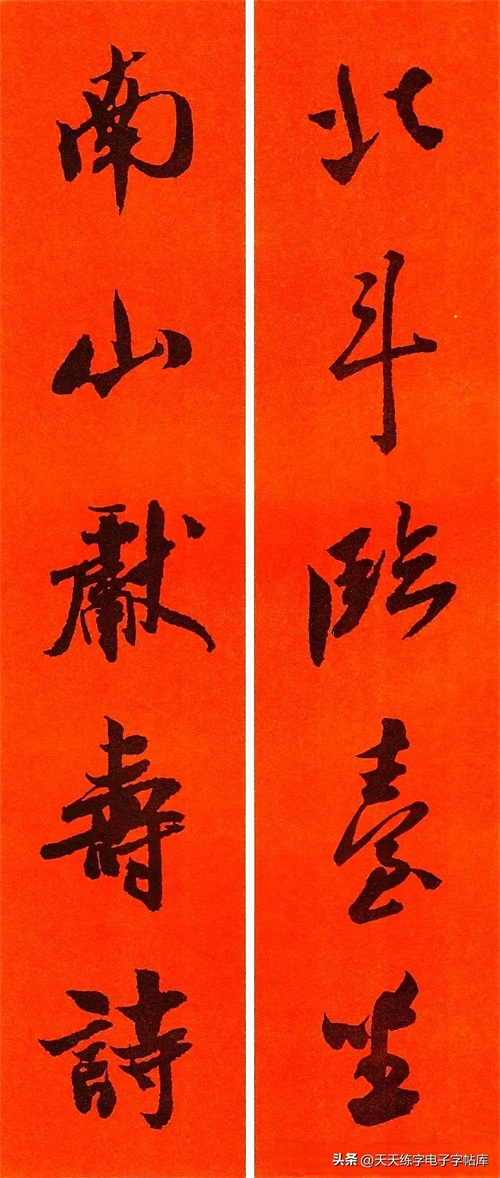 北斗臨臺坐
南山獻壽詩
头条 @天天练字电子字帖库